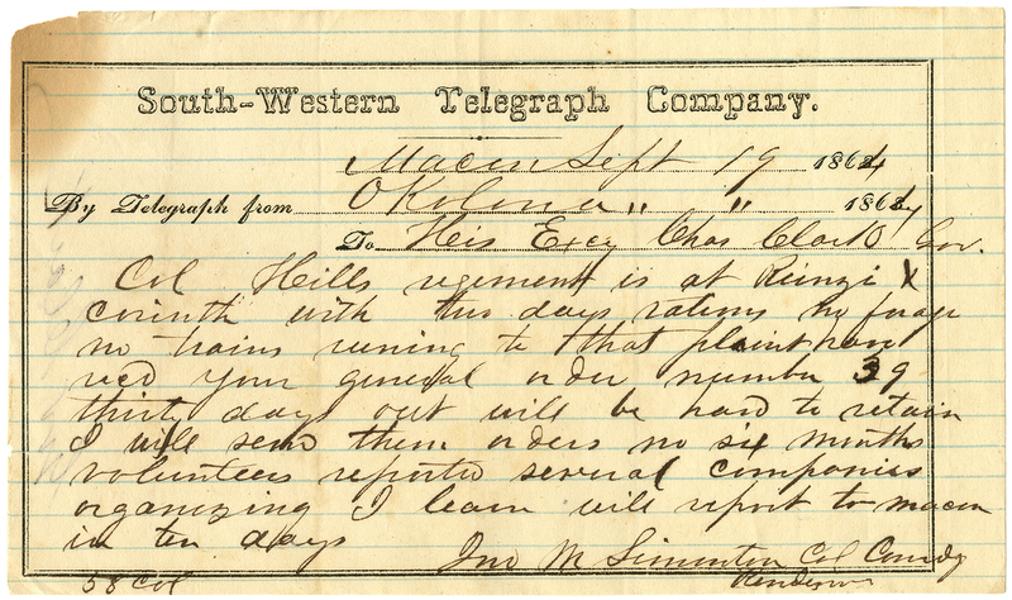 South-Western Telegraph Company.
Macon Sept 19 1864
By Telegraph from Okolona " " 1864
To His Excy Chas Clark Gov.
Col Hills regement is at Rienzi &
Corinth with two days rations no forage
no trains runing to that point have
recd your general order number 39
thirty days out will be hard to retain
I will send them orders no six months
volunteers reported several companies
organizing I learn will report to macon
in ten days
Jno M Simonton Col Comdg
58 Col